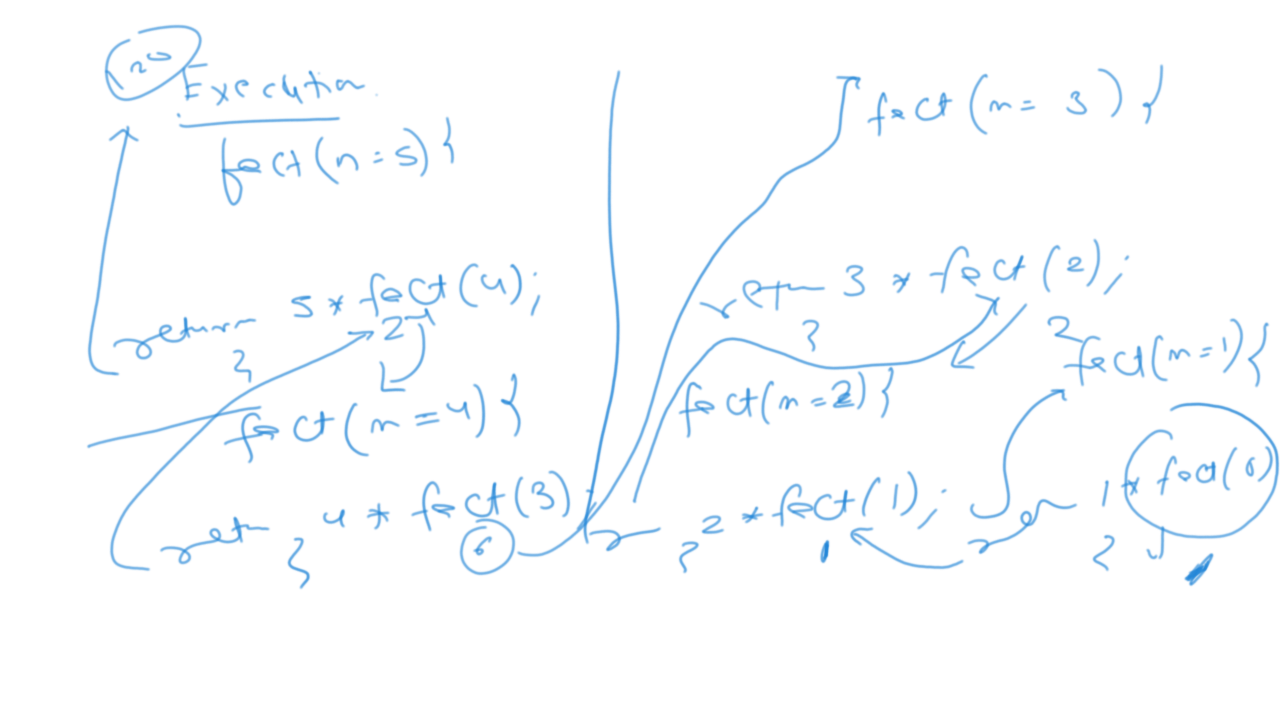 120
Execution
fact(n=5){
return 5 * fact(4);
24
}
fact(n=4){
ret 4 * fact(3);
6
}
fact(n=3){
retn 3 * fact(2);
2
}
fact(n=2){
r 2 * fact(1);
1
}
fact(n=1){
1 * fact(0)
}
1